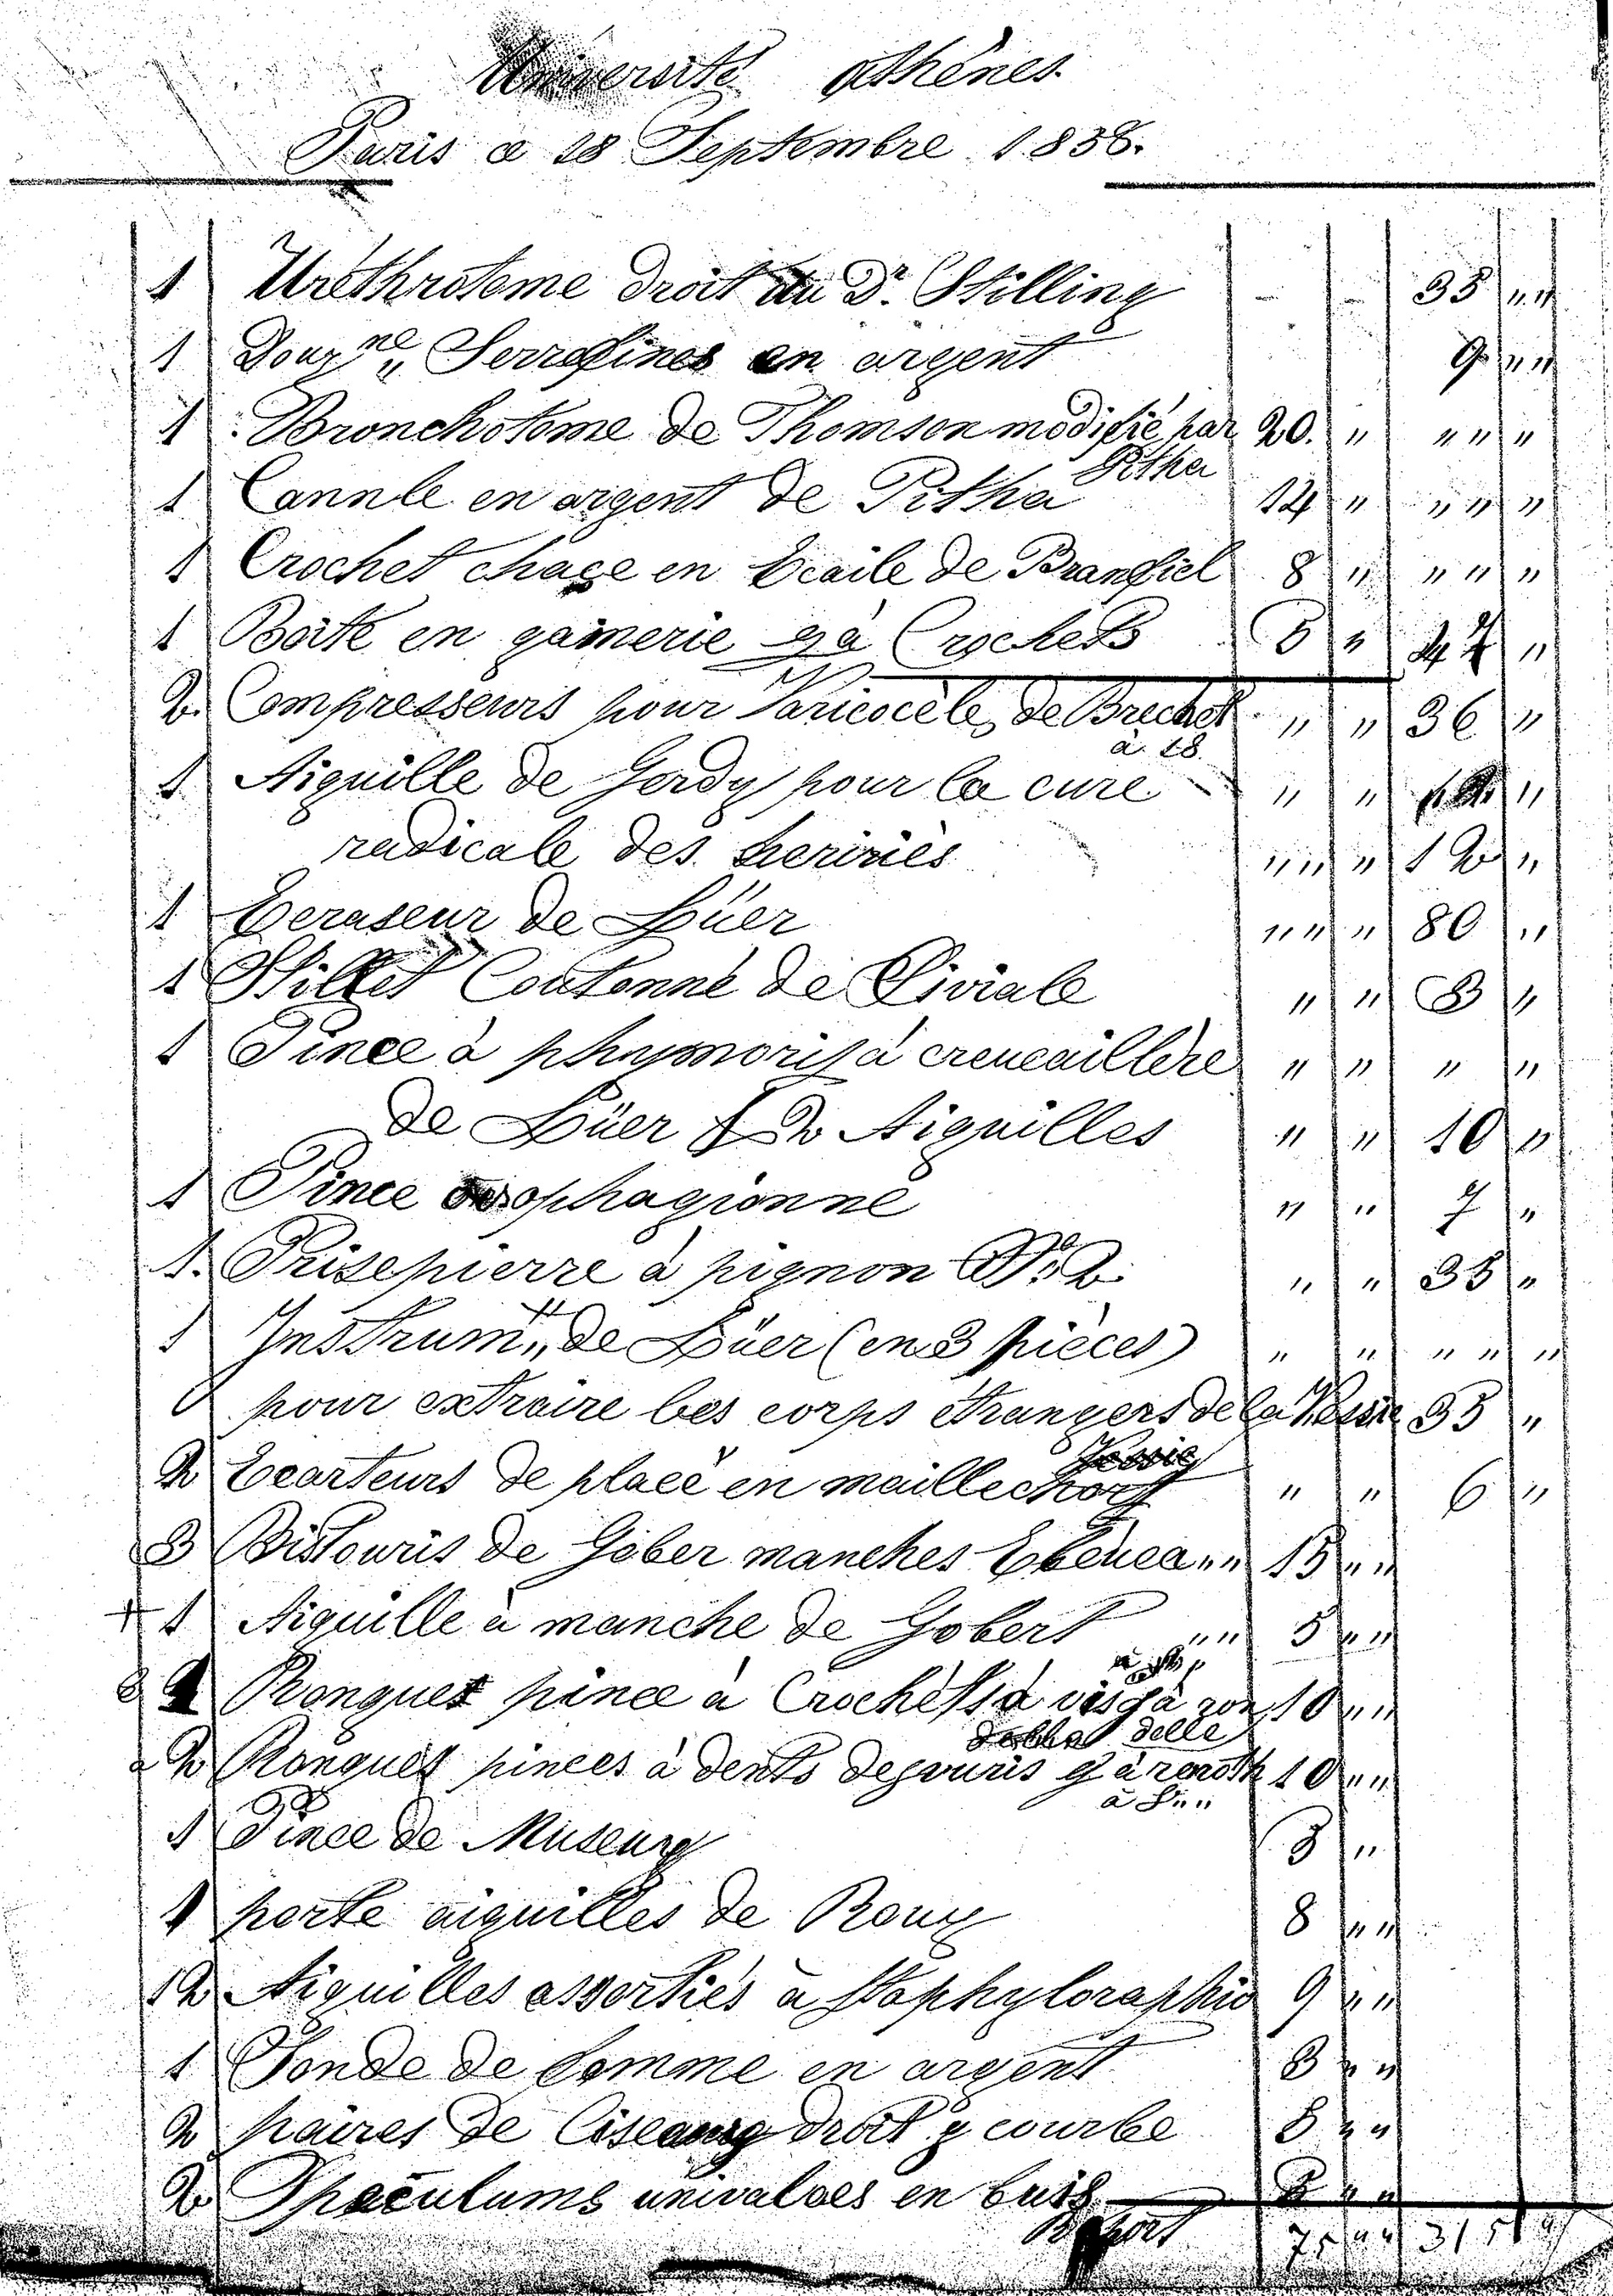 Université Athênes
Paris ce 18 Septembre 1858.
1 Uréthrotome droit du Dr. Stilling - - 35 " "
1 Douzne " Serrefines en argent 9 " "
1 Bronchotome de Thomson modifié par 20. " " " "
Pitha
1 Cannle en argent de Pitha 14 " " " "
1 Crochet en Ecaile de 8 " " " "
1 Boîte en gainerie à Crochets 5 " 47 "
2 Compresseurs pour Varicocèle, de Brechet " " 36 "
à 18
1 Aiguille de Gerdy pour la cure " " "
radicale des herniès " " " 12 "
1 Ecraseur de Lüer " " " 80 "
1 Stillet Coutonné de Civiale " " 3 "
1 Pince à phymoris à " " " "
de Lüer 2 Aiguilles " " 10 "
1 Pince oesophagienne " " 7 "
1. Prisepierre à pignon No. 2 " " 35 "
1 Instrumt " de Lüer (en 3 pièces) " " " " "
pour extraire les corps étrangers de la Vessie 35 "
2 Ecarteurs de place en maillechort " " 6 "
3 Bistouris de Gober manches " " 15 " "
1 Aiguille à manche de Gobert " " 5 " "
pince à Crochets à vis à ron 10 " "
delle
2 pinces à dents 10 " "
à 5 " "
1 Pince de Museux 3 "
1 porte aiguilles de Roux 8 " "
12 Aiguilles assortiés à Staphyloraphie 9 " "
1 Sonde de femme en argent 3 " "
2 paires de Ciseaux droit & courbe 5 " "
2 Spéculums univalves en buis " "
Report 75 " " 315 "